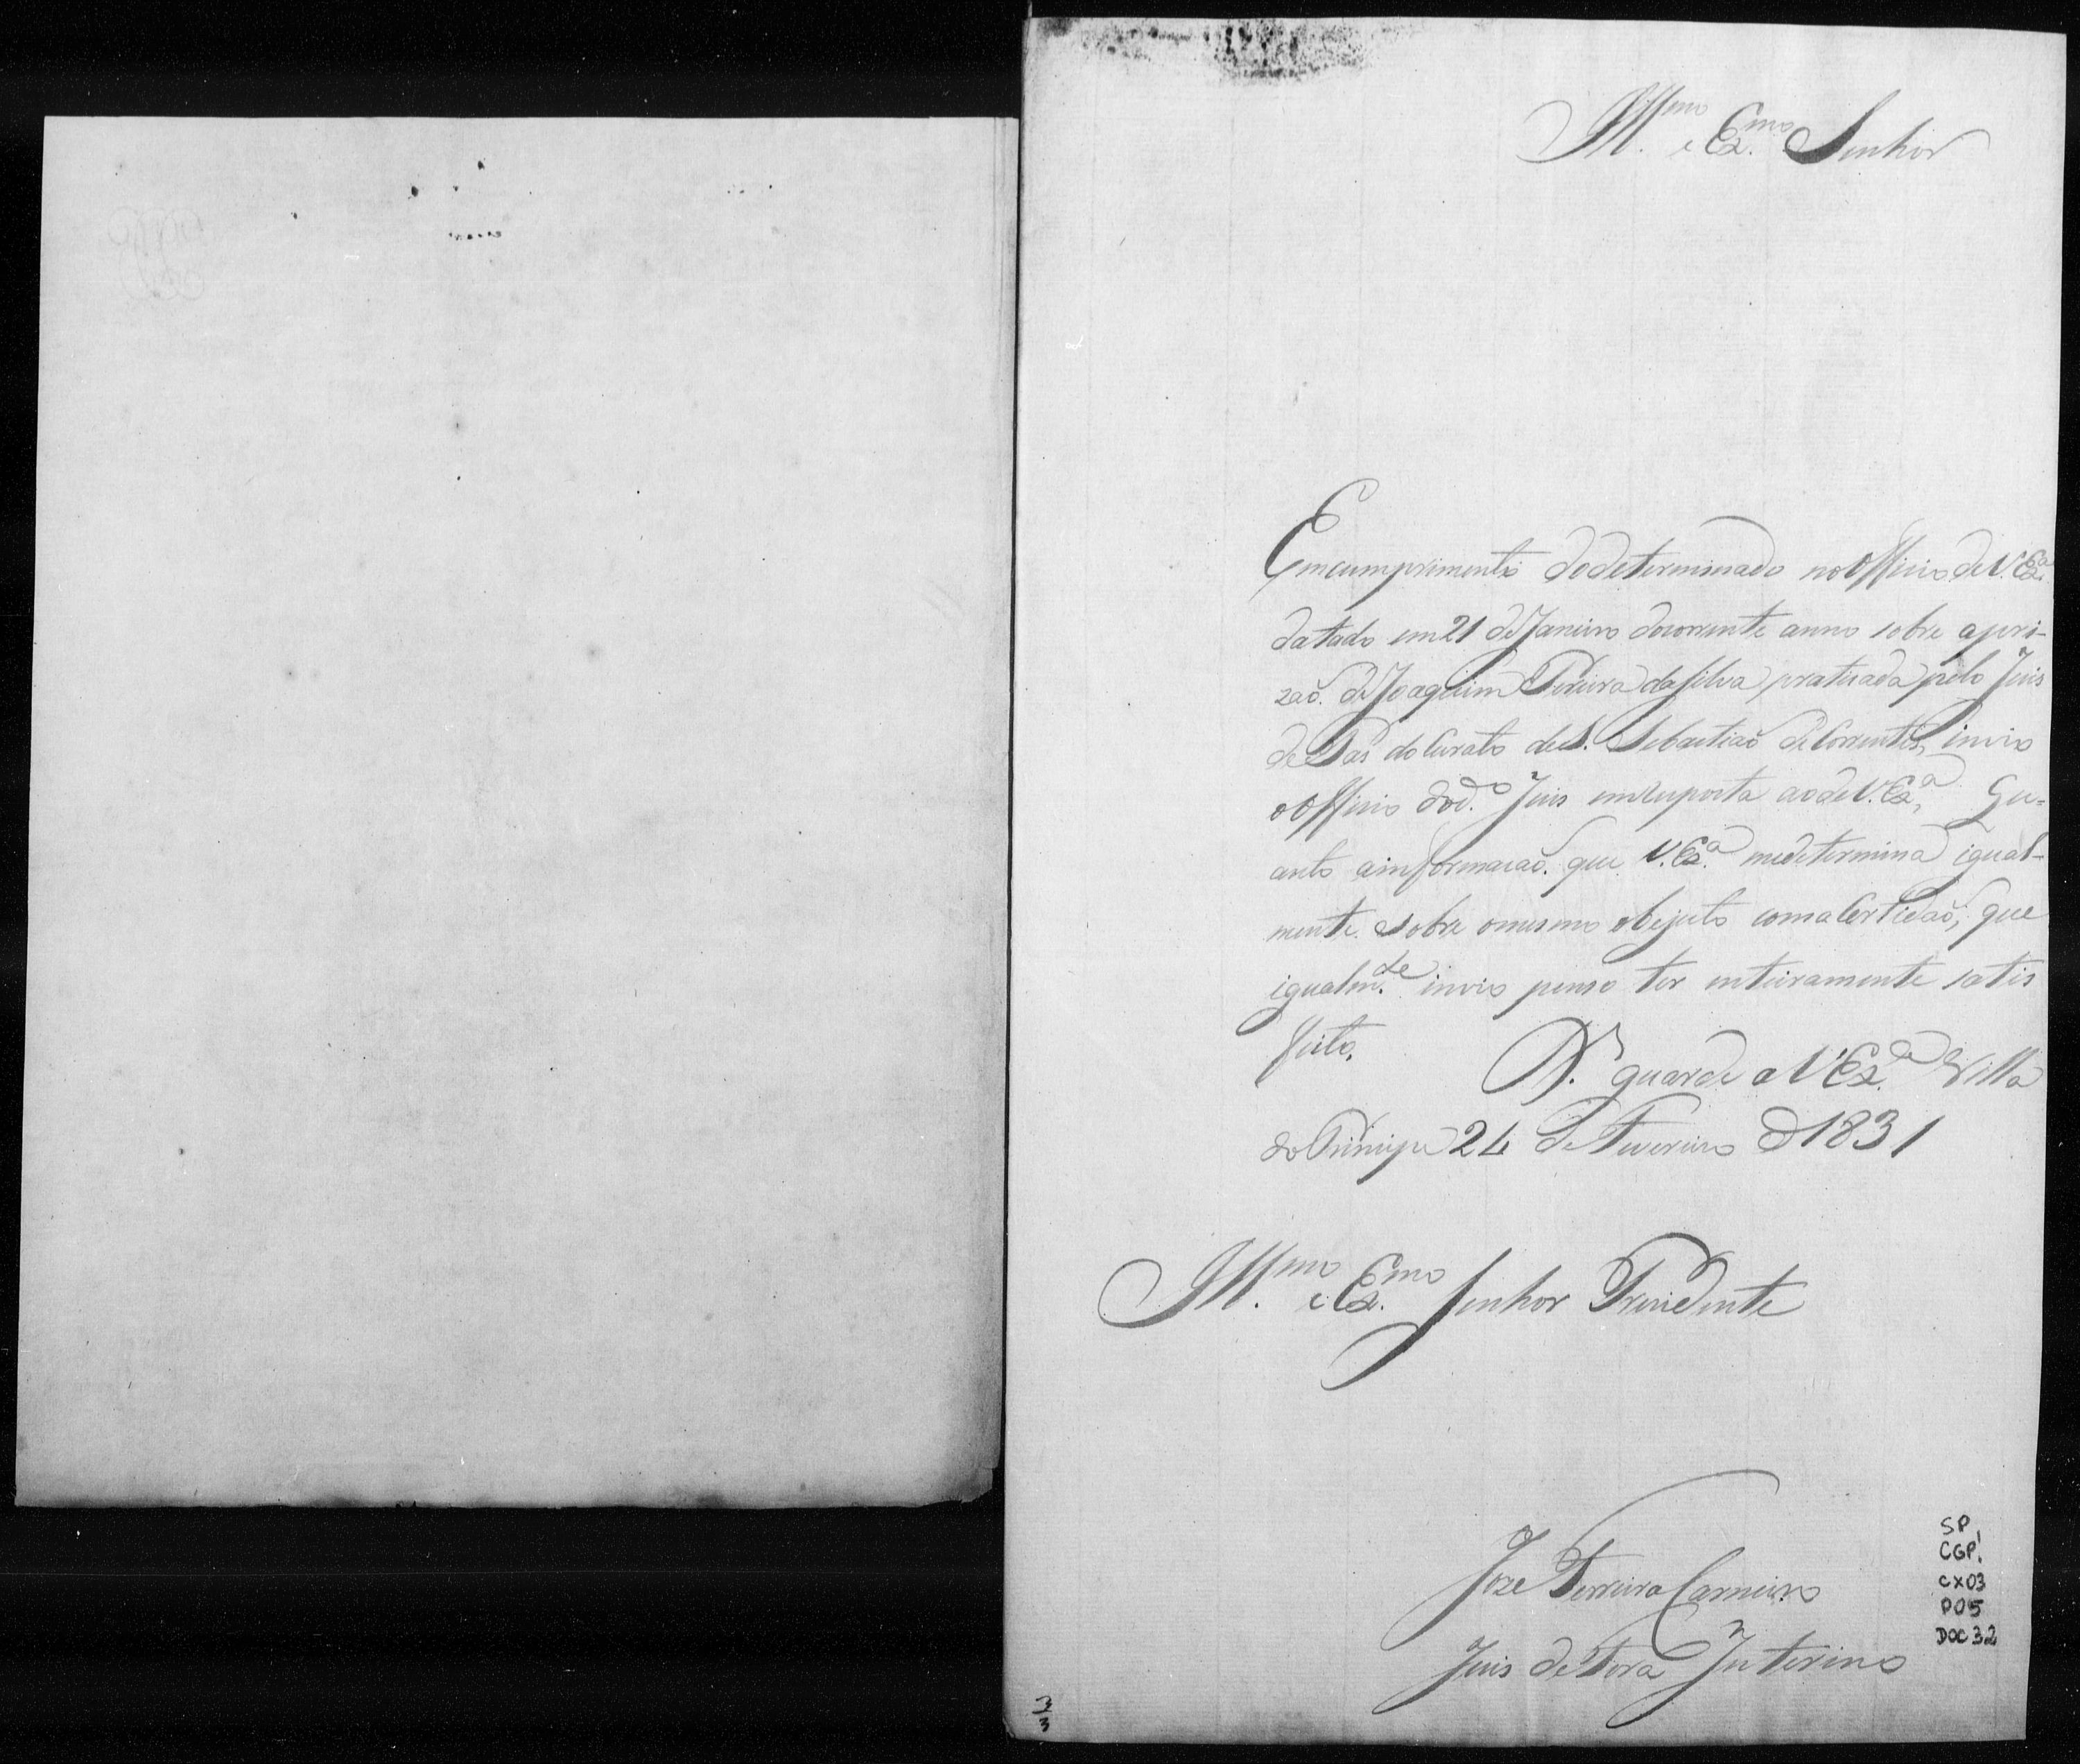 Ill.mo e Ex.mo Senhor
Em cumprimento do determinado no Officio de V. Ex.a
datado em 21 de Janeiro do corrente anno sobre a pri-
zaõ de Joaquim Pereira da Silva praticada pelo Juis
de Pas do Curato de S. Sebastiaõ de Correntes, invio
o Officio do d.o Juis em resposta ao de V. Ex.a, Qu-
anto a informacaõ que V. Ex.a me determina igual-
mente sobre o mesmo objecto com a Certidaõ, que
igualm.te invio penso ter inteiramente satis
feito.
D.s guarde a V Ex.a Villa
do Principe 24 de Fevereiro d 1831
Ill.mo e Ex.mo Senhor Prezidente
Joze Ferreira Carneiro
Juis de Fora Interino
SP,
CGP!
CX03
P05
DOC 32
3
3